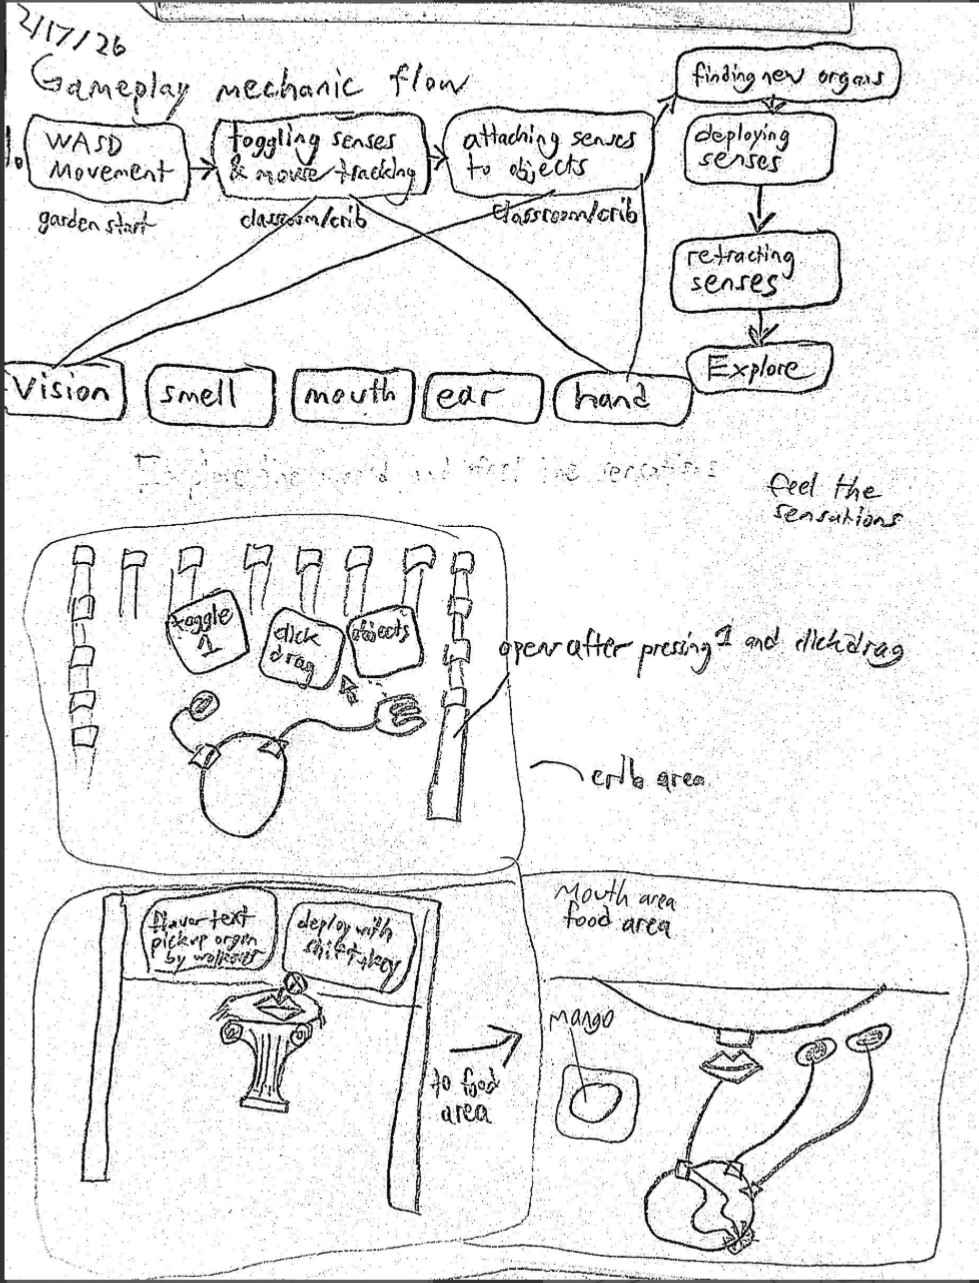 2/17/26
Gameplay mechanic flow
1.
WASD
Movement
garden start
toggling senses
& mouse tracking
classroom/crib
attaching senses
to objects
classroom/crib
finding new organs
deploying
senses
retracting
senses
Explore
Vision
smell
mouth
ear
hand
feel the
sensations
toggle
1
click
drag
objects
open after pressing 1 and clickdrag
crib area
flavor text
pickup organ
by walkover
deploy with
shift+key
to food
area
Mouth area
food area
Mango